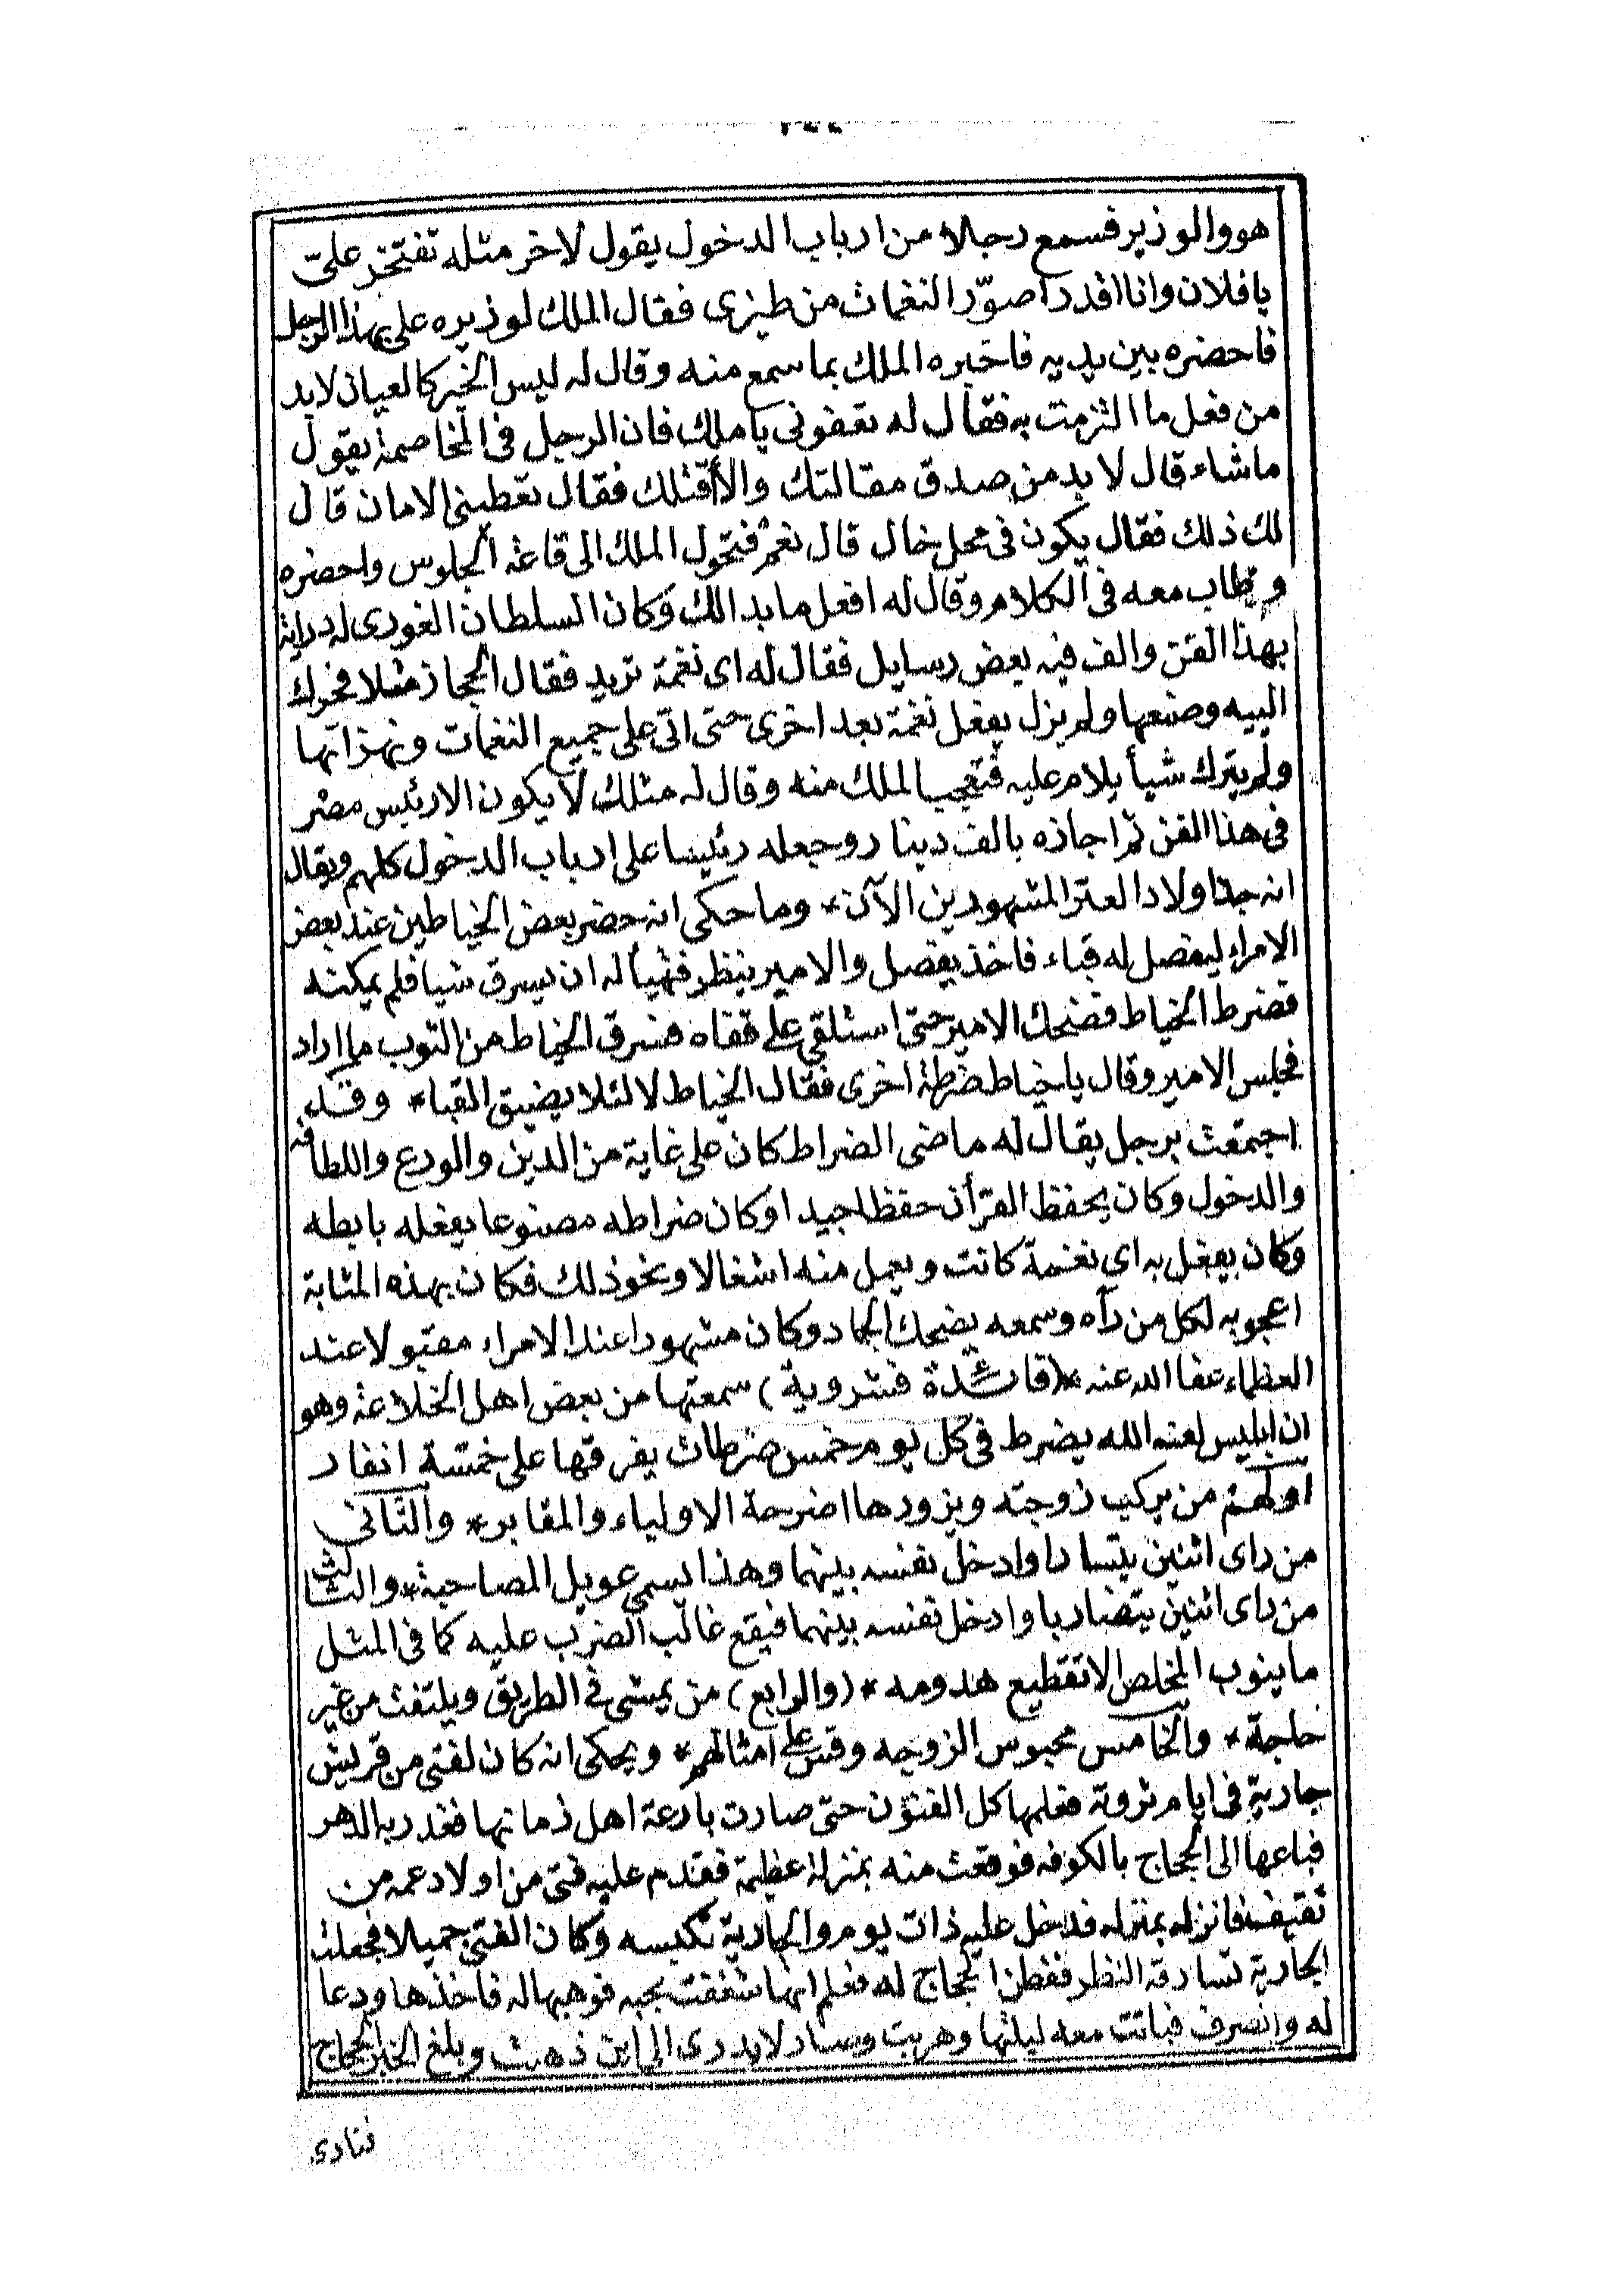 هو والوزير فسمع رجلا من ارباب الدخول يقول لاخر مثله تفتخر علىّ
يا فلان وانا اقدر اصوّر النغمات من طيزى فقال الملك لوزيره على بهذا الرجل
فاحضره بين يديه فاخبره الملك بما سمع منه وقال له ليس الخبر كالعيان لابد
من فعل ما التزمت به فقال له تعفونى يا ملك فان الرجل فى المخاصمة يقول
ماشاء قال لا بد من صدق مقالتك والا أقتلك فقال تعطينى الامان قال
لك ذلك فقال يكون فى محل خال قال نعم فتحول الملك الى قاعة الجلوس واحضره
وطاب معه فى الكلام وقال له افعل ما بدالك وكان السلطان الغورى له دراية
بهذا الفن والف فيه بعض رسايل فقال له اى نغمة تريد فقال الحجاز مثلا فحرك
اليیه وصنعها ولم يزل يفعل نغمة بعد اخرى حتى اتى على جميع النغمات ونهزاتها
ولم يترك شيأ يلام عليه فتعجب الملك منه وقال له مثلك لا يكون الا رئيس مصر
فى هذا الفن ثم اجازه بالف دينار وجعله رئيسا على ارباب الدخول كلهم ويقال
انه جد اولاد العتر المشهورين الآن * وما حكى انه حضر بعض الخياطين عند بعض
الامراء ليفصل له قباء فاخذ يفصل والامير ينظر فتهيأ له ان يسرق شيا فلم يمكنه
فضرط الخياط فضحك الامير حتى استلقى على قفاه فسرق الخياط من الثوب ما اراد
فجلس الامير وقال يا خياط ضرطة اخرى فقال الخياط لا لئلا يضيق القباء * وقد
اجتمعت برجل يقال له ماضى الضراط كان على غاية من الدين والورع واللطافة
والدخول وكان يحفظ القرأن حفظا جيدا وكان ضراطه مصنوعا يفعله بابطه
وكان يفعل به اى نغمة كانت ويعمل منه اشغالا ونحو ذلك فكان بهذه المثابة
اعجوبه لكل من رآه وسمعه يضحك الجماد وكان مشهورا عند الامراء مقبولا عند
العظماء عفا الله عنه * (فائدة فشروية) سمعتها من بعض اهل الخلاعة وهو
ان ابليس لعنه الله يضرط فى كل يوم خمس ضرطات يفرقها على خمسة انفار
اولهم من يركب زوجته ويزورها اضرحة الاولياء والمقابر * والثانى
من راى اثنين يتسارا وادخل نفسه بينهما وهذا يسمى عويل المصاحبة * والثالث
من راى اثنين يتضاربا وادخل نفسه بينهما فيقع غالب الضرب عليه كما فى المثل
ما ينوب المخلص الا تقطيع هدومه * (والرابع) من يمشى فى الطريق ويلتفت من غير
حاجة * والخامس محبوس الزوجه وقس على امثالهم * ويحكى انه كان لفتى من قريش
جارية فى ايام ثروته فعلمها كل الفنون حتى صارت بارعة اهل زمانها فغدر به الدهر
فباعها الى الحجاج بالكوفه فوقعت منه بمنزلة عظيمة فقدم عليه فتى من اولاد عمه من
ثقيف فانزله بمنزله فدخل عليه ذات يوم والجارية تكبسه وكان الفتى جميلا فجعلت
الجارية تسارقه النظر ففطن الحجاج له فعلم انها شغفت بحبه فوهبها له فاخذها ودعا
له وانصرف فباتت معه ليلتها وهربت وسار لا يدرى الى اين ذهبت وبلغ الخبر الحجاج
فنادى